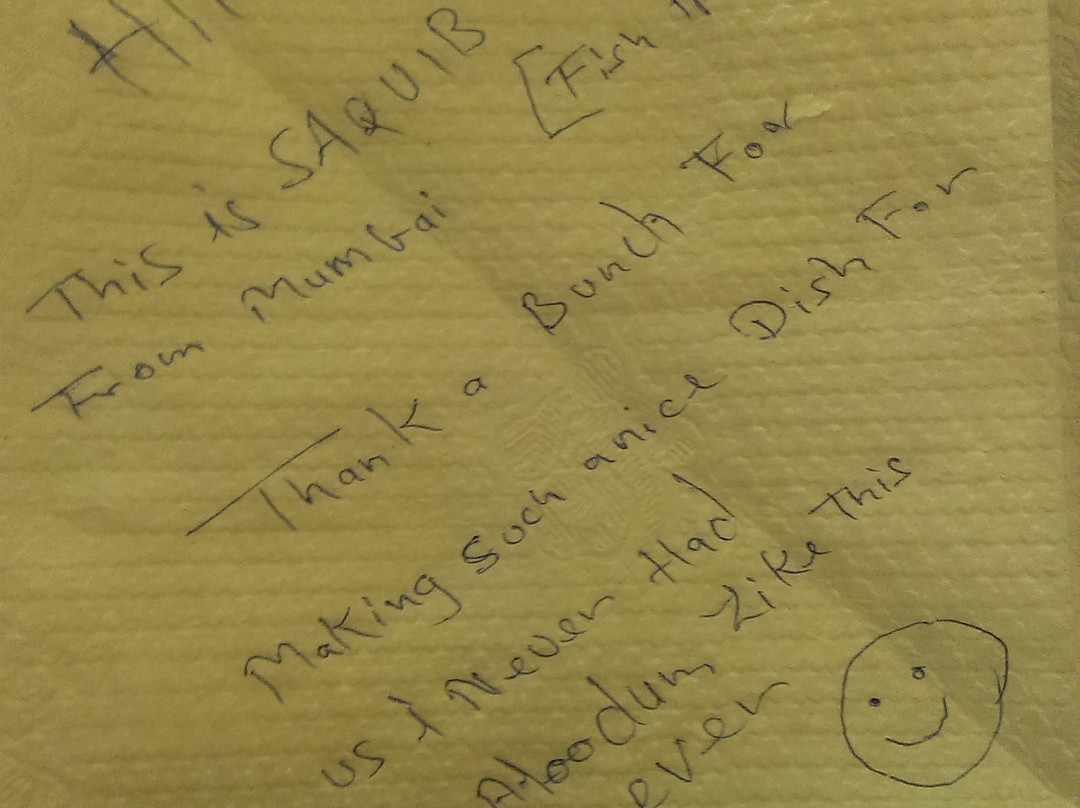 This is SAQUIB
From Mumbai
[Fish
Thank a Bunch For
Making such a nice Dish For
us I Never Had
Like This
ever